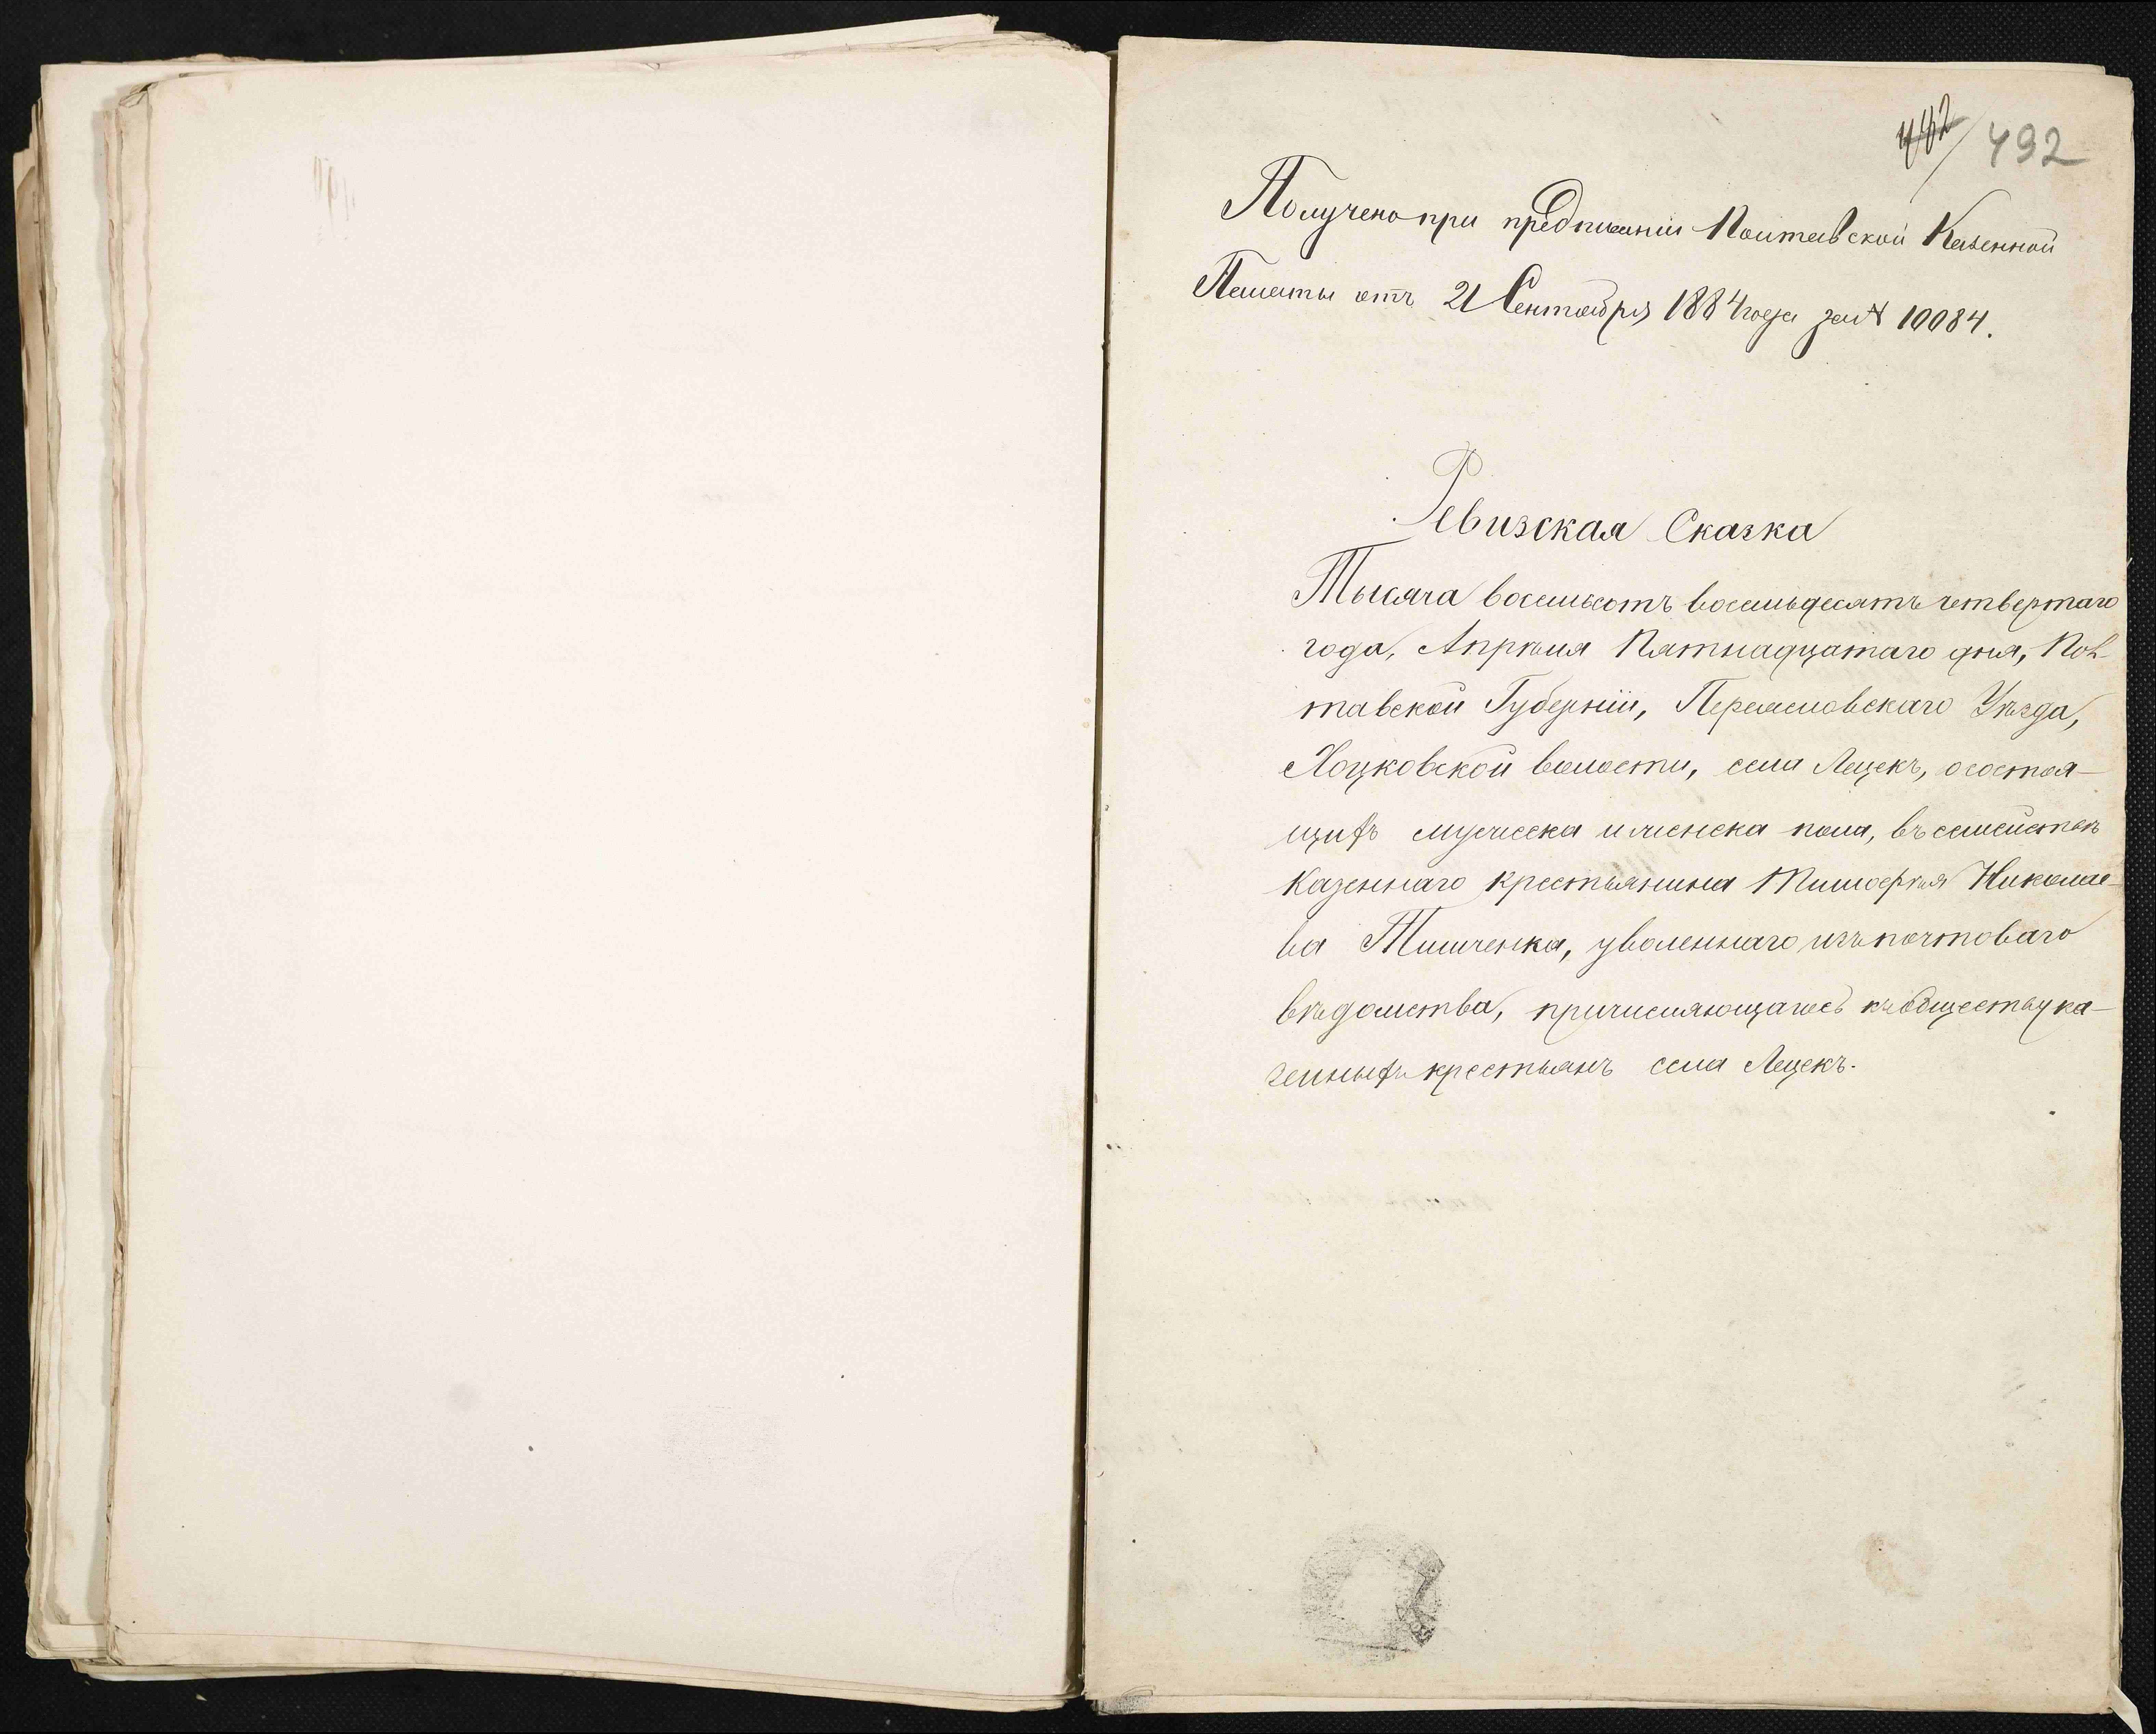 442/ 492
Получено при предписаніи Полтавской Казенной
Палаты отъ 21 Сентября 1884 года за № 10084.
Ревизская Сказка
Тысяча восемьсотъ восемьдесятъ четвертаго
года, Апрѣля Пятнадцатаго дня, Пол-
тавской Губерніи, Переяславскаго Уѣзда,
Хоцковской волости, села Лецекъ, о состоя-
щихъ мужеска и женска пола, въ семействѣ
Казеннаго крестьянина Тимоѳѣя Николае-
ва Тимченка, уволеннаго изъ почтоваго
вѣдомства, причисляющагося къ обществу ка-
зенныхъ крестьянъ села Лецекъ.